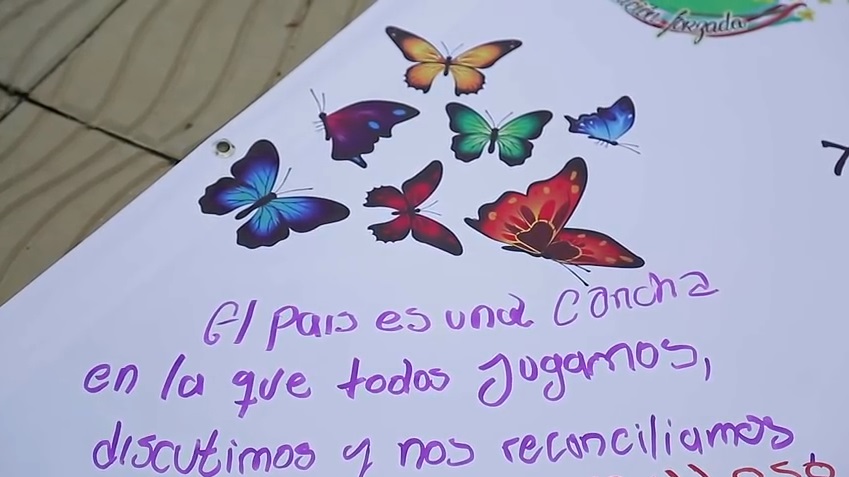 forzada
El pais es una Concha
en la que todos Jugamos,
discutimos y nos reconciliamos